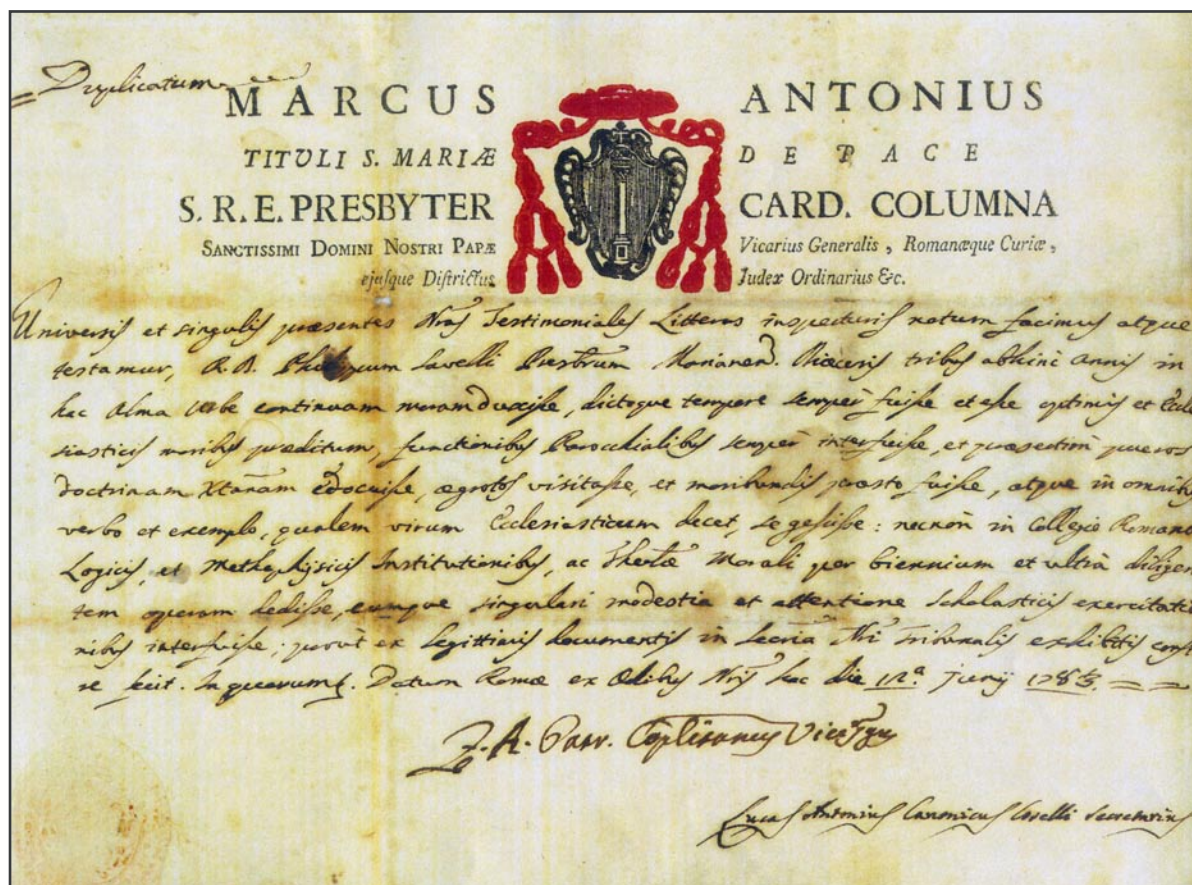 Duplicatum
MARCUS ANTONIUS
TITULI S. MARIÆ DE PACE
S. R. E. PRESBYTER CARD. COLUMNA
SANCTISSIMI DOMINI NOSTRI PAPÆ Vicarius Generalis, Romanæque Curiæ,
ejusque Districtus Judex Ordinarius &c.
Universis et singulis præsentes Nras Testimoniales Litteras inspecturis notum facimus atque
testamur, R. D. Savelli tribus abhinc annis in
hac Alma Urbe continuam moram duxisse, dictoque tempore semper fuisse et esse optimis et Eccle
siasticis moribus præditum, functionibus Parochialibus semper interfuisse, et præsertim pueros
Doctrinam Xtanam edocuisse, ægrotos visitasse, et moribundis præsto fuisse, atque in omnibus
verbo et exemplo, qualem virum Ecclesiasticum decet, se gessisse: necnon in Collegio Romano
Logicis, et Methaphisicis Institutionibus, ac Morali per biennium et ultrà diligen
tem operam dedisse, eumque singulari modestia et attentione scholasticis exercitatio
nibus interfuisse; prout ex legittimis documentis in Nri Tribunalis exhibitis const
re fecit. In quorum Datum Romæ ex Ædibus Nris hac die 12.a Junij
Lucas Antonius Canonicus Coselli Secretarius